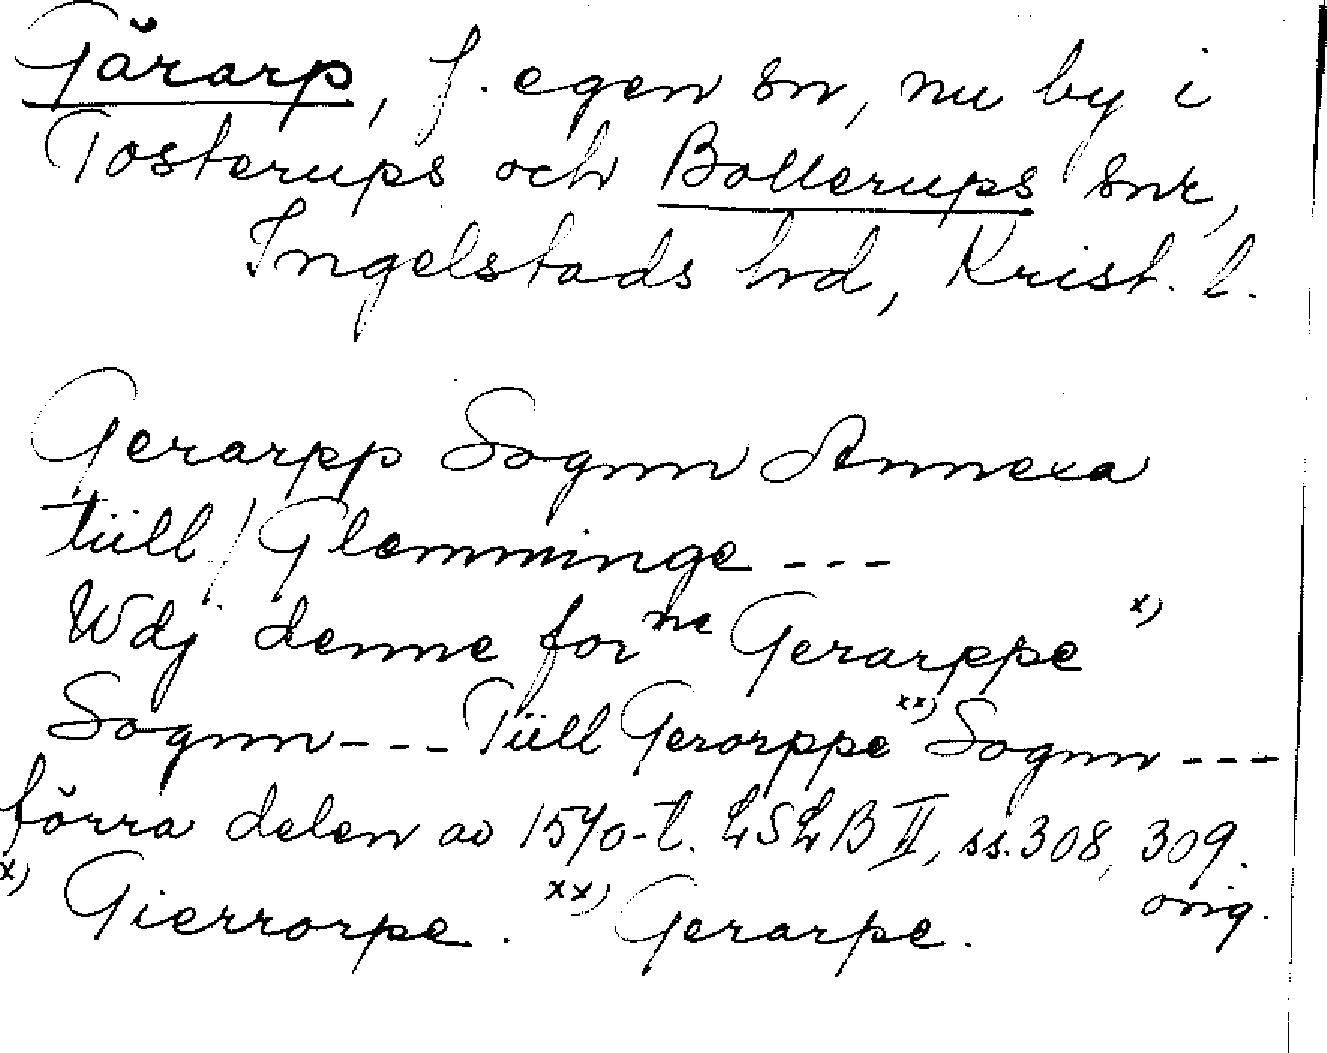 Gärarp, f. egen sn, nu by i
Tosterups och Bollerups snr,
Ingelstads hd, Krist. l.
Gerarpp Sognn Annexa
tiill / Glemminge ---
Wdj denne for ne Gerarppe x)
Sognn --- Tiill Gerorppe xx) Sognn ---
förra delen av 1570-t. LSLB II, ss. 308, 309.
orig.
x) Gierrorpe. xx) Gerarpe.